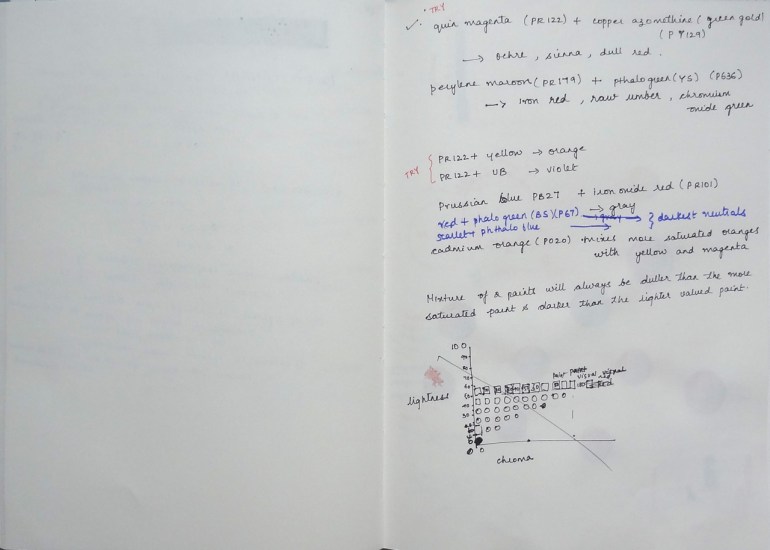 TRY
quin magenta (PR122) + copper azomethine (green gold)
(PY129)
→ ochre, sienna, dull red.
perylene maroon (PR179) + pthalo green (YS) (PG36)
→ iron red, raw umber, chromium
oxide green
TRY
PR122 + yellow → orange
PR122 + UB → violet
Prussian blue PB27 + iron oxide red (PR101)
→ gray
red + phalo green (BS) (PG7) → } darkest neutrals
scarlet + phthalo blue →
cadmium orange (PO20) mixes more saturated oranges
with yellow and magenta
Mixture of 2 paints will always be duller than the more
saturated paint & darker than the lighter valued paint.
100
90
80
70
60
50
40
30
lightness
visual
red
0
chroma